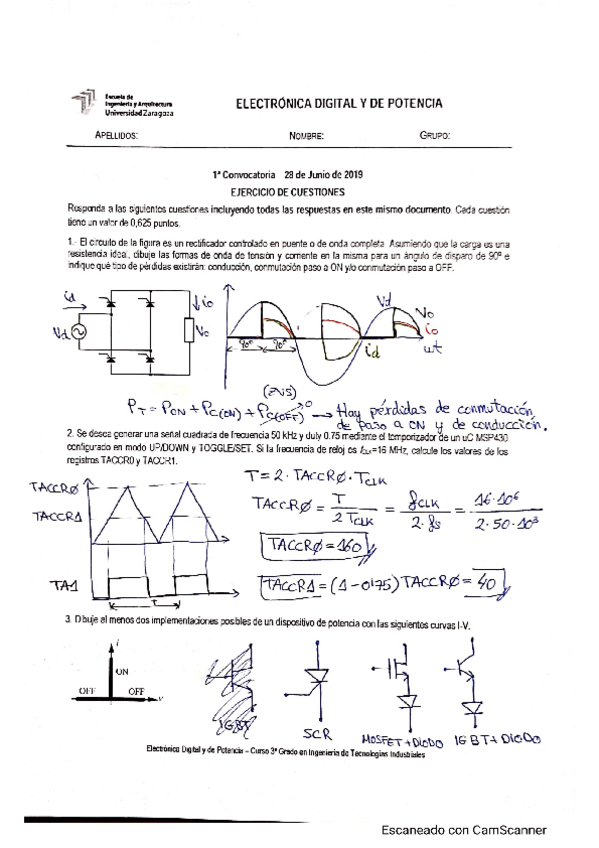 Escuela de
Ingeniería y Arquitectura
Universidad Zaragoza
ELECTRÓNICA DIGITAL Y DE POTENCIA
APELLIDOS: NOMBRE: GRUPO:
1ª Convocatoria 28 de Junio de 2019
EJERCICIO DE CUESTIONES
Responda a las siguientes cuestiones incluyendo todas las respuestas en este mismo documento. Cada cuestión
tiene un valor de 0,625 puntos.
1.- El circuito de la figura es un rectificador controlado en puente o de onda completa. Asumiendo que la carga es una
resistencia ideal, dibuje las formas de onda de tensión y corriente en la misma para un ángulo de disparo de 90º e
indique qué tipo de pérdidas existirán: conducción, conmutación paso a ON y/o conmutación paso a OFF.
id io Vd Vo
Vd Vo io
90º 90º id wt
(ZVS)
PT = PON + PC(ON) + PC(OFF) 0 → Hay pérdidas de conmutación
de paso a ON y de conducción.
2. Se desea generar una señal cuadrada de frecuencia 50 kHz y duty 0.75 mediante el temporizador de un uC MSP430
configurado en modo UP/DOWN y TOGGLE/SET. Si la frecuencia de reloj es fCLK=16 MHz, calcule los valores de los
registros TACCR0 y TACCR1.
T = 2 · TACCRØ · TCLK
TACCRØ
TACCR1
TACCRØ = T / 2 TCLK = fCLK / 2·fs = 16·10⁶ / 2·50·10³
TACCRØ = 160
TA1
T
TACCR1 = (1-0'75) TACCRØ = 40
3. Dibuje al menos dos implementaciones posibles de un dispositivo de potencia con las siguientes curvas I-V.
i
ON
OFF OFF v
IGBT SCR MOSFET+DIODO IGBT+DIODO
Electrónica Digital y de Potencia – Curso 3º Grado en Ingeniería de Tecnologías Industriales
Escaneado con CamScanner